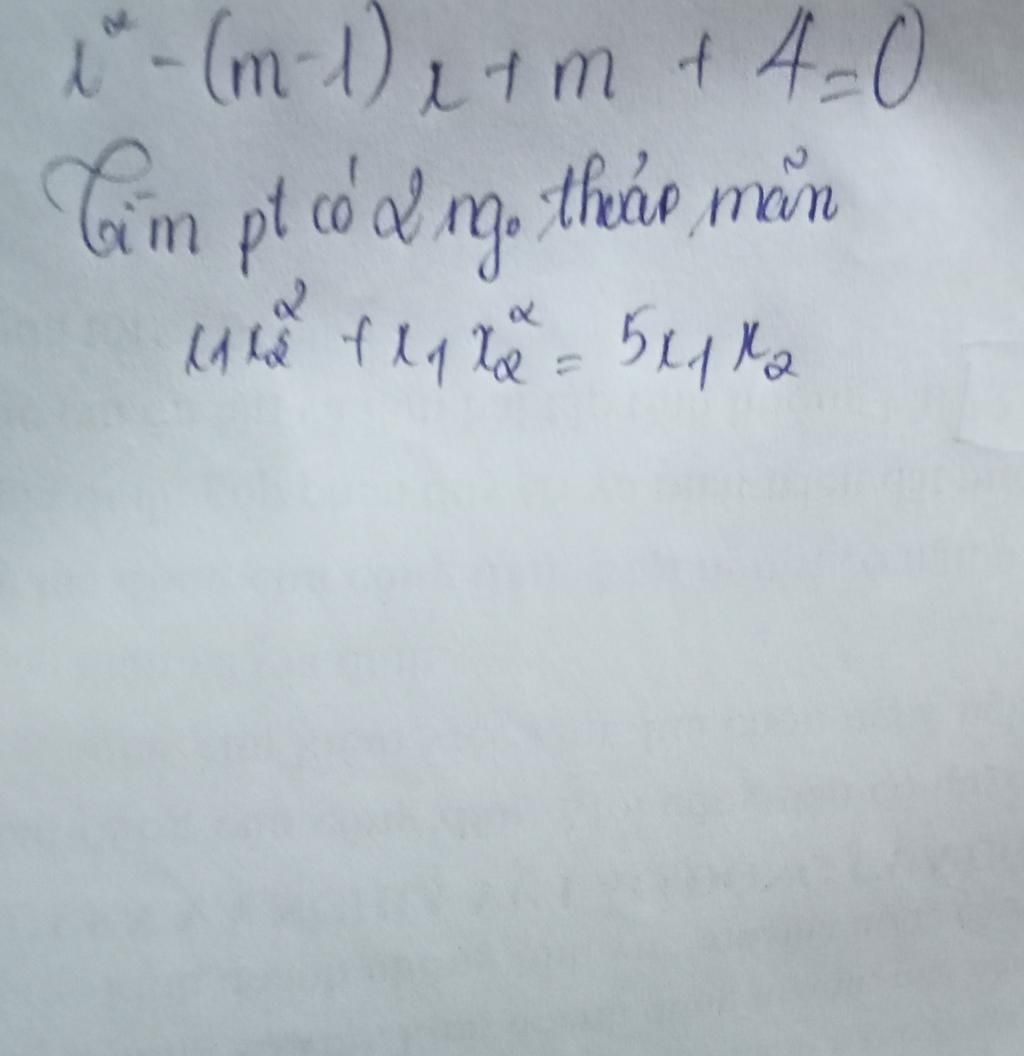 x² - (m-1)x + m + 4 = 0
Tìm pt có 2 ng. thỏa mãn
x₁x₂² + x₁x₂² = 5x₁x₂